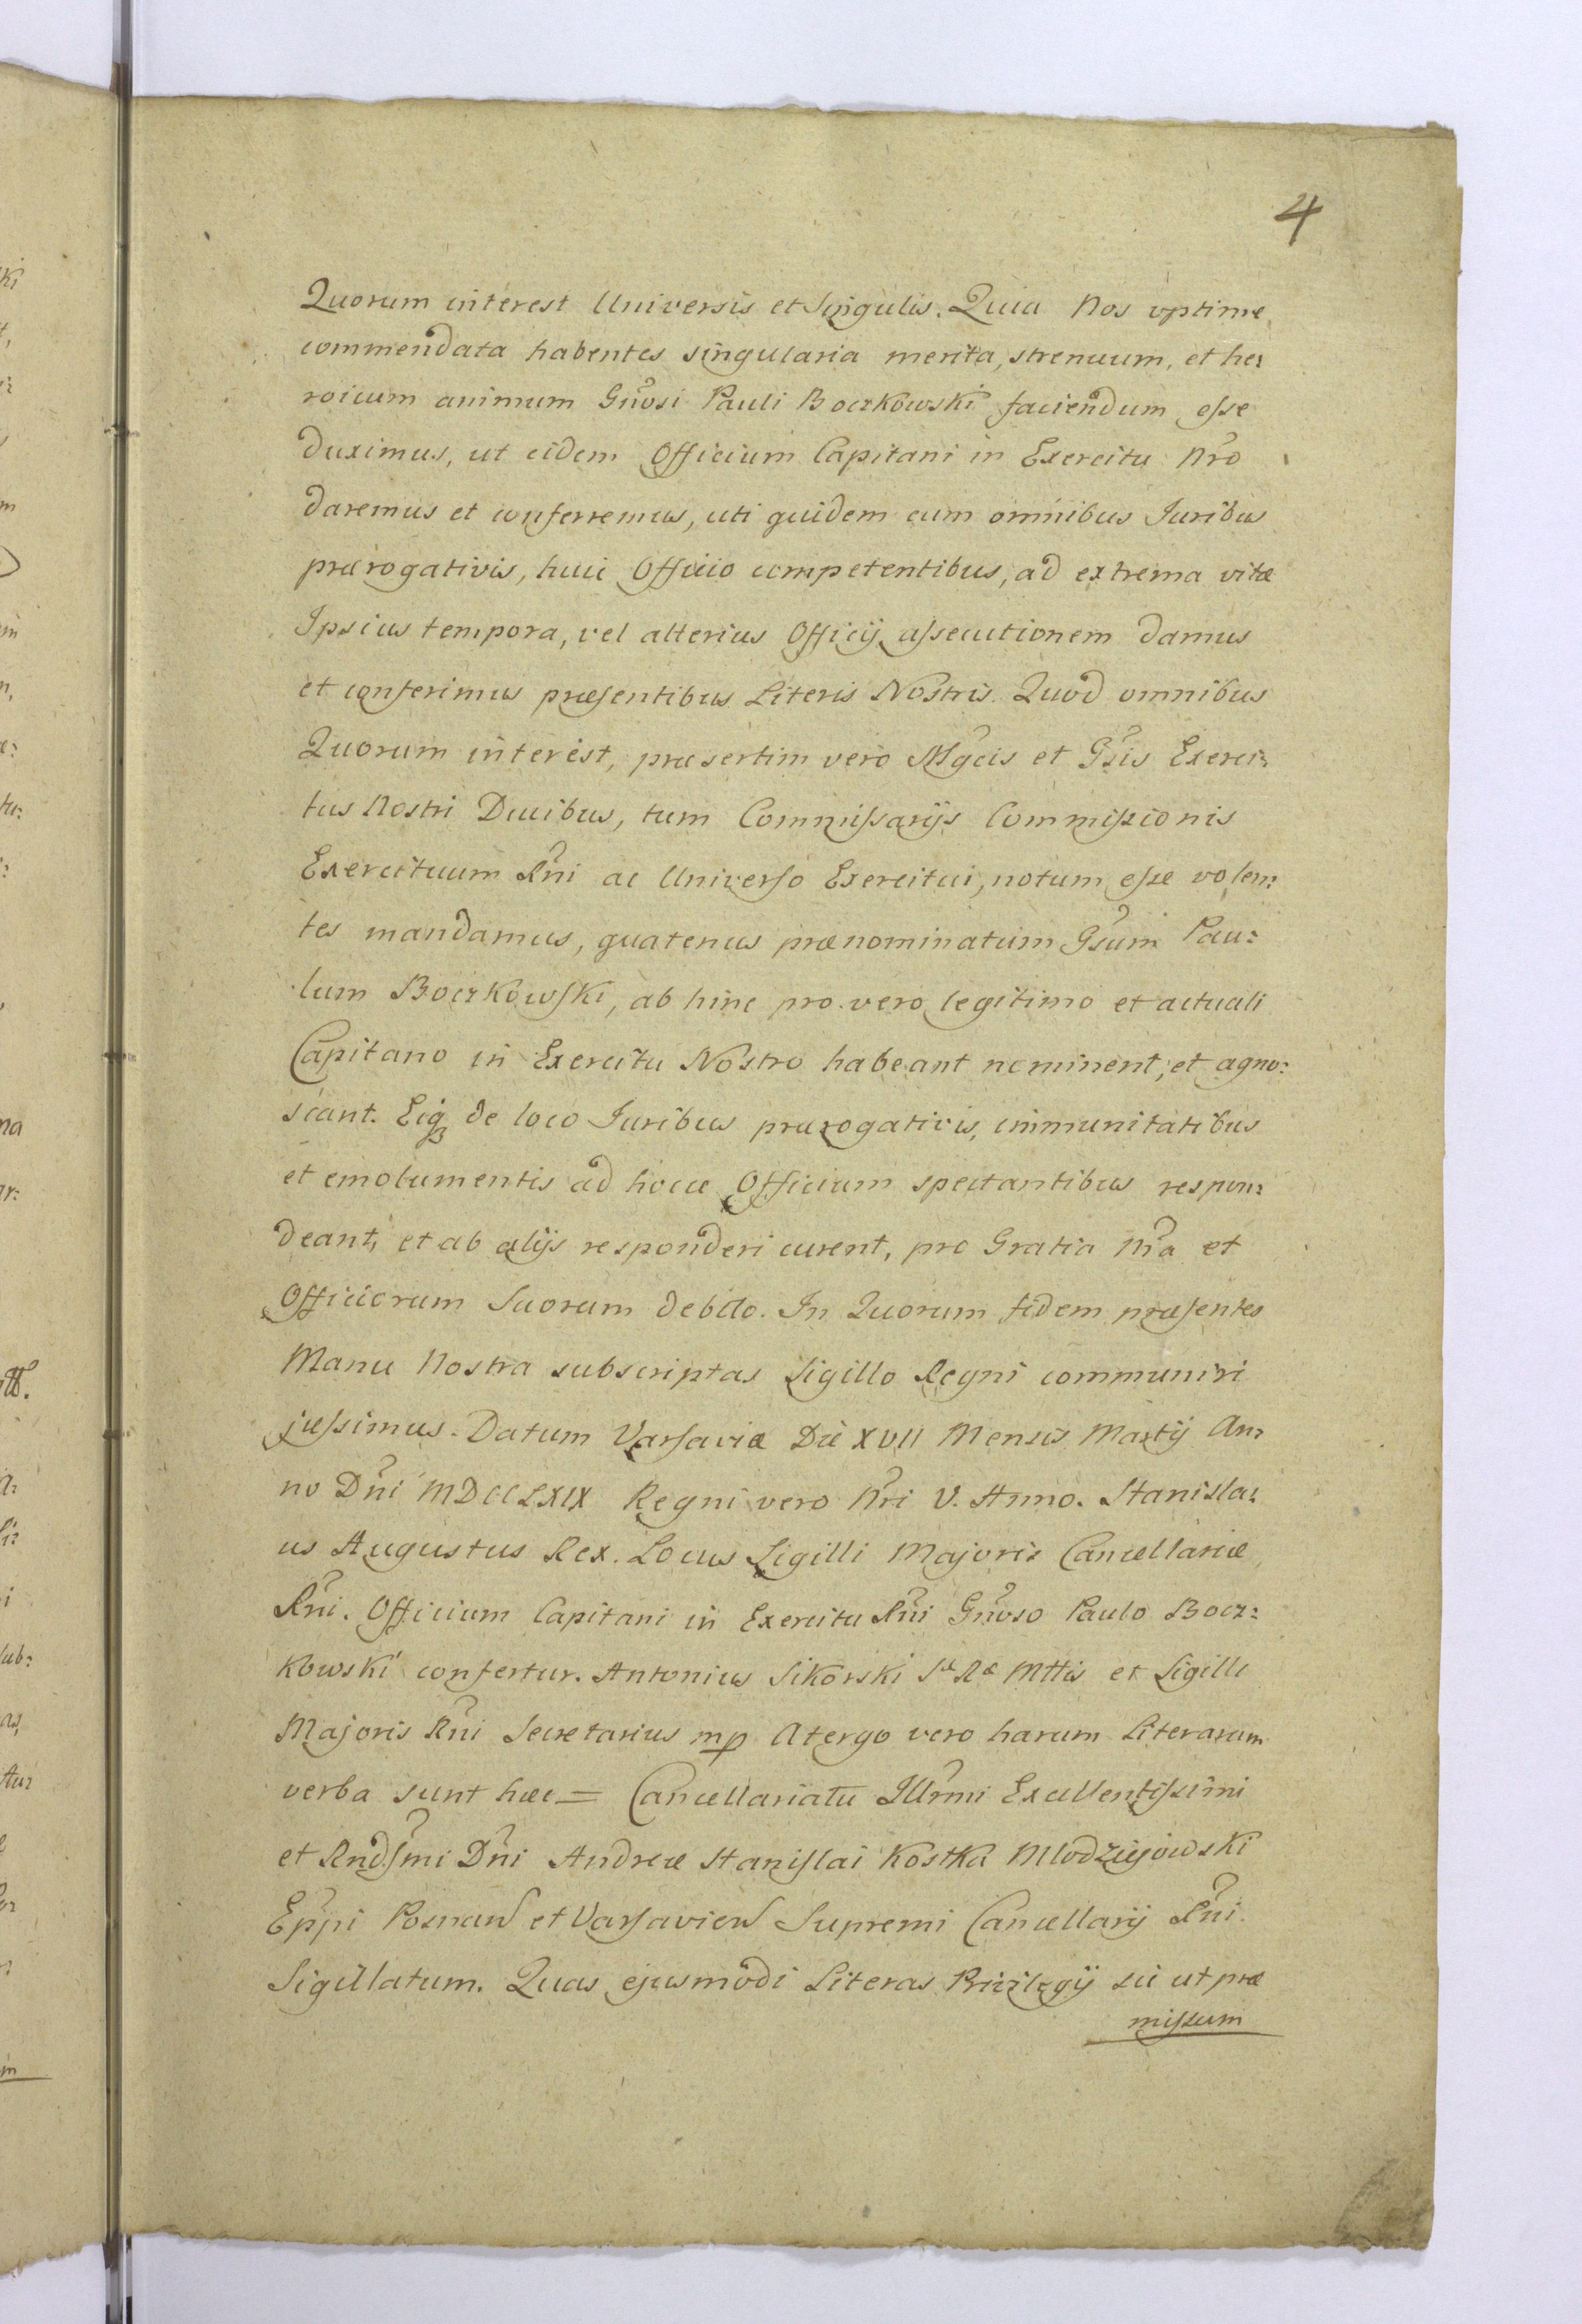 4
Quorum interest Universis et Singulis. Quia Nos optime
commendata habentes singularia merita, strenuum, et he:
roicum animum Gnosi Pauli Boczkowski faciendum esse
duximus, ut eidem Officium Capitani in Exercitu Nro
daremus et conferremus, uti quidem cum omnibus Juribus
prærogativis, huic Officio competentibus, ad extrema vitæ
Ipsius tempora, vel alterius Officij assecutionem damus
et conferimus præsentibus Literis Nostris. Quod omnibus
Quorum interest, præsertim vero Mgcis et Gsis Exerci:
tus Nostri Ducibus, tum Commissarijs Commissionis
Exercituum Rni ac Universo Exercitui, notum esse volen:
tes mandamus, quatenus prænominatum Gsum Pau:
lum Boczkowski, ab hinc pro vero legitimo et actuali
Capitano in Exercitu Nostro habeant nominent, et agno:
scant. Eiq3 de loco Juribus prærogativis, immunitatibus
et emolumentis ad hocce Officium spectantibus respon:
deant, et ab alijs responderi curent, pro Gratia Nra et
Officiorum Suorum debito. In Quorum fidem præsentes
Manu Nostra subscriptas Sigillo Regni communiri
jussimus. Datum Varsaviæ Die XVII Mensis Martij An:
no Dni MDCCLXIX Regni vero Nri V. Anno. Stanisla:
us Augustus Rex. Locus Sigilli Majoris Cancellariæ
Rni. Officium Capitani in Exercitu Rni Gnoso Paulo Bocz:
kowski confertur. Antonius Sikorski Sæ Ræ Mttis et Sigilli
Majoris Rni Secretarius mp Atergo vero harum Literarum
verba sunt hæc = Cancellariatu Illrmi Excellentissimi
et Rndsmi Dni Andreæ Stanislai Kostka Mlodziejowski
Eppi Posnan et Varsavien Supremi Cancellarij Rni.
Sigillatum. Quas ejusmodi Literas Privilegij sic ut præ
missum